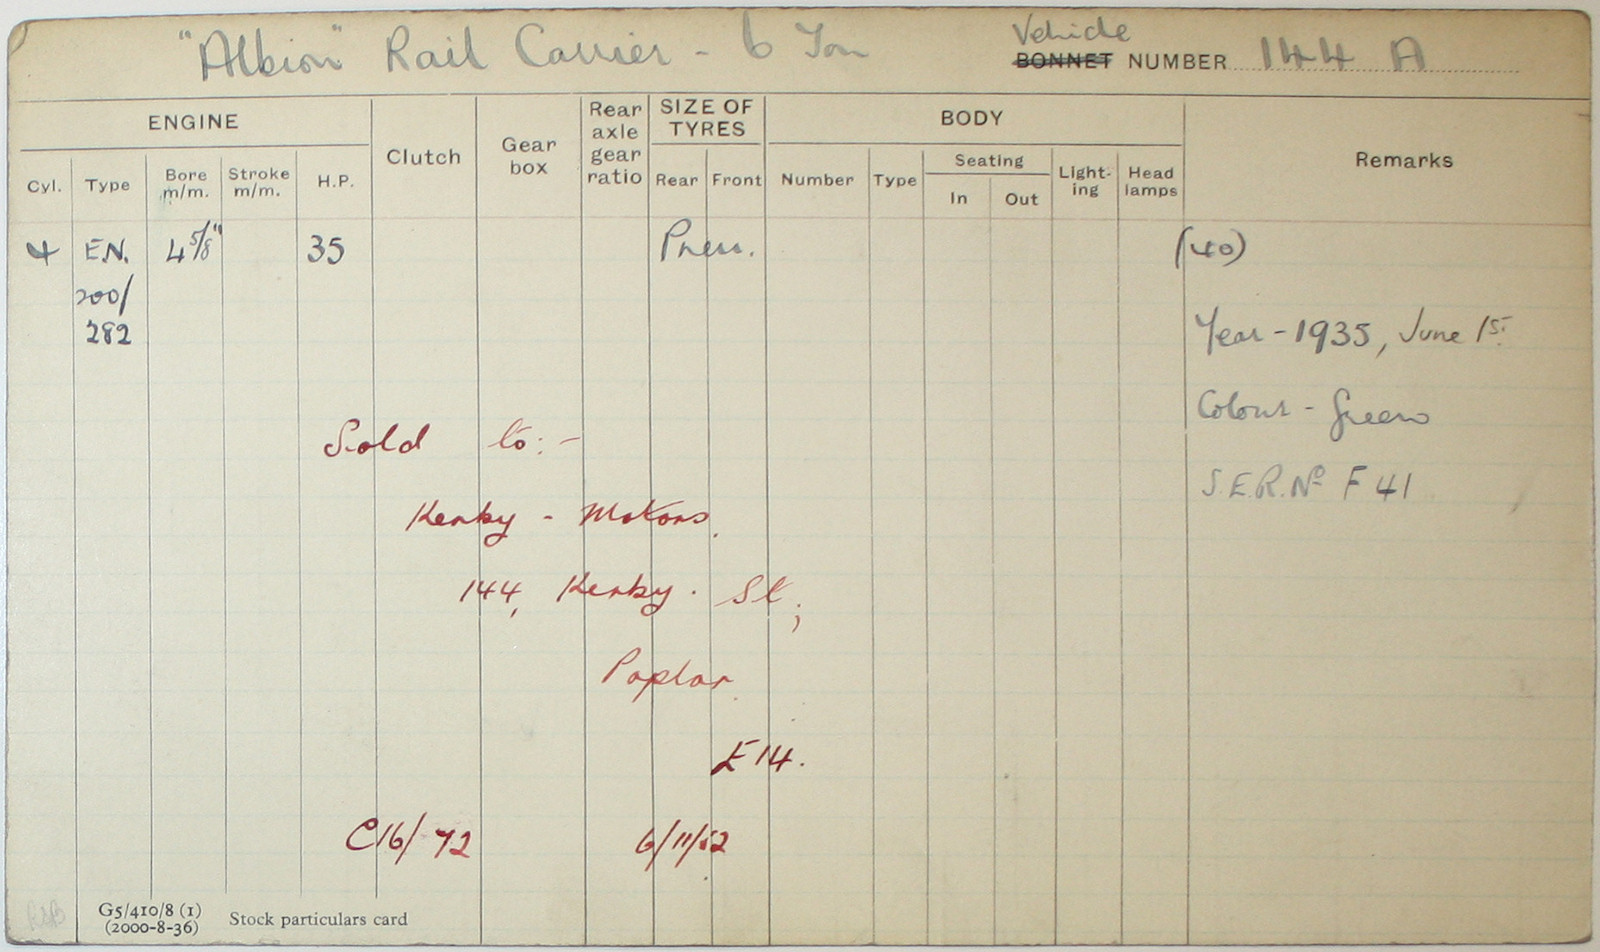 "Albion" Rail Carrier - 6 Ton
Vehicle
BONNET NUMBER 144 A
ENGINE Clutch Gear box Rear axle gear ratio SIZE OF TYRES BODY Remarks
Cyl. Type Bore m/m. Stroke m/m. H.P. Rear Front Number Type Seating In Out Light-ing Head lamps
4 EN. 4 5/8" 35 Pneu. (40)
200/
282
Year - 1935, June 15.
Colour - Green
Sold to:-
S.E.R. No F 41
Kerby - Motors.
144, Kerby. St,
Poplar
E14.
C16/72 6/11/52
G5/410/8 (1)
(2000-8-36)
Stock particulars card